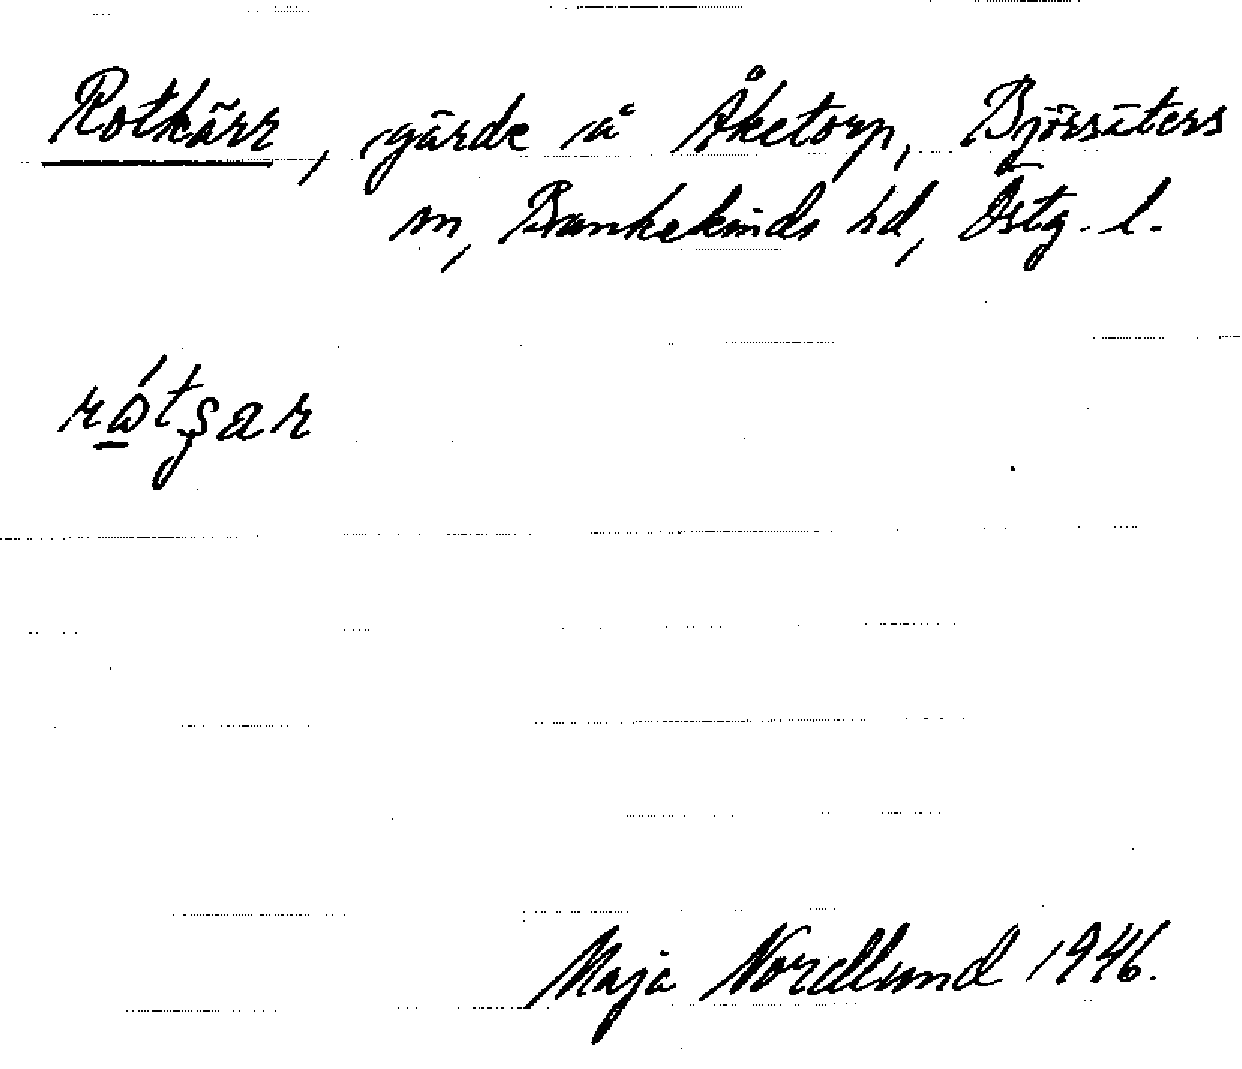 Rotkärr, gärde å Åketorp, Björsäters
sn, Bankekinds hd, Östg. l.
rótşar
Maja Nordlund 1946.